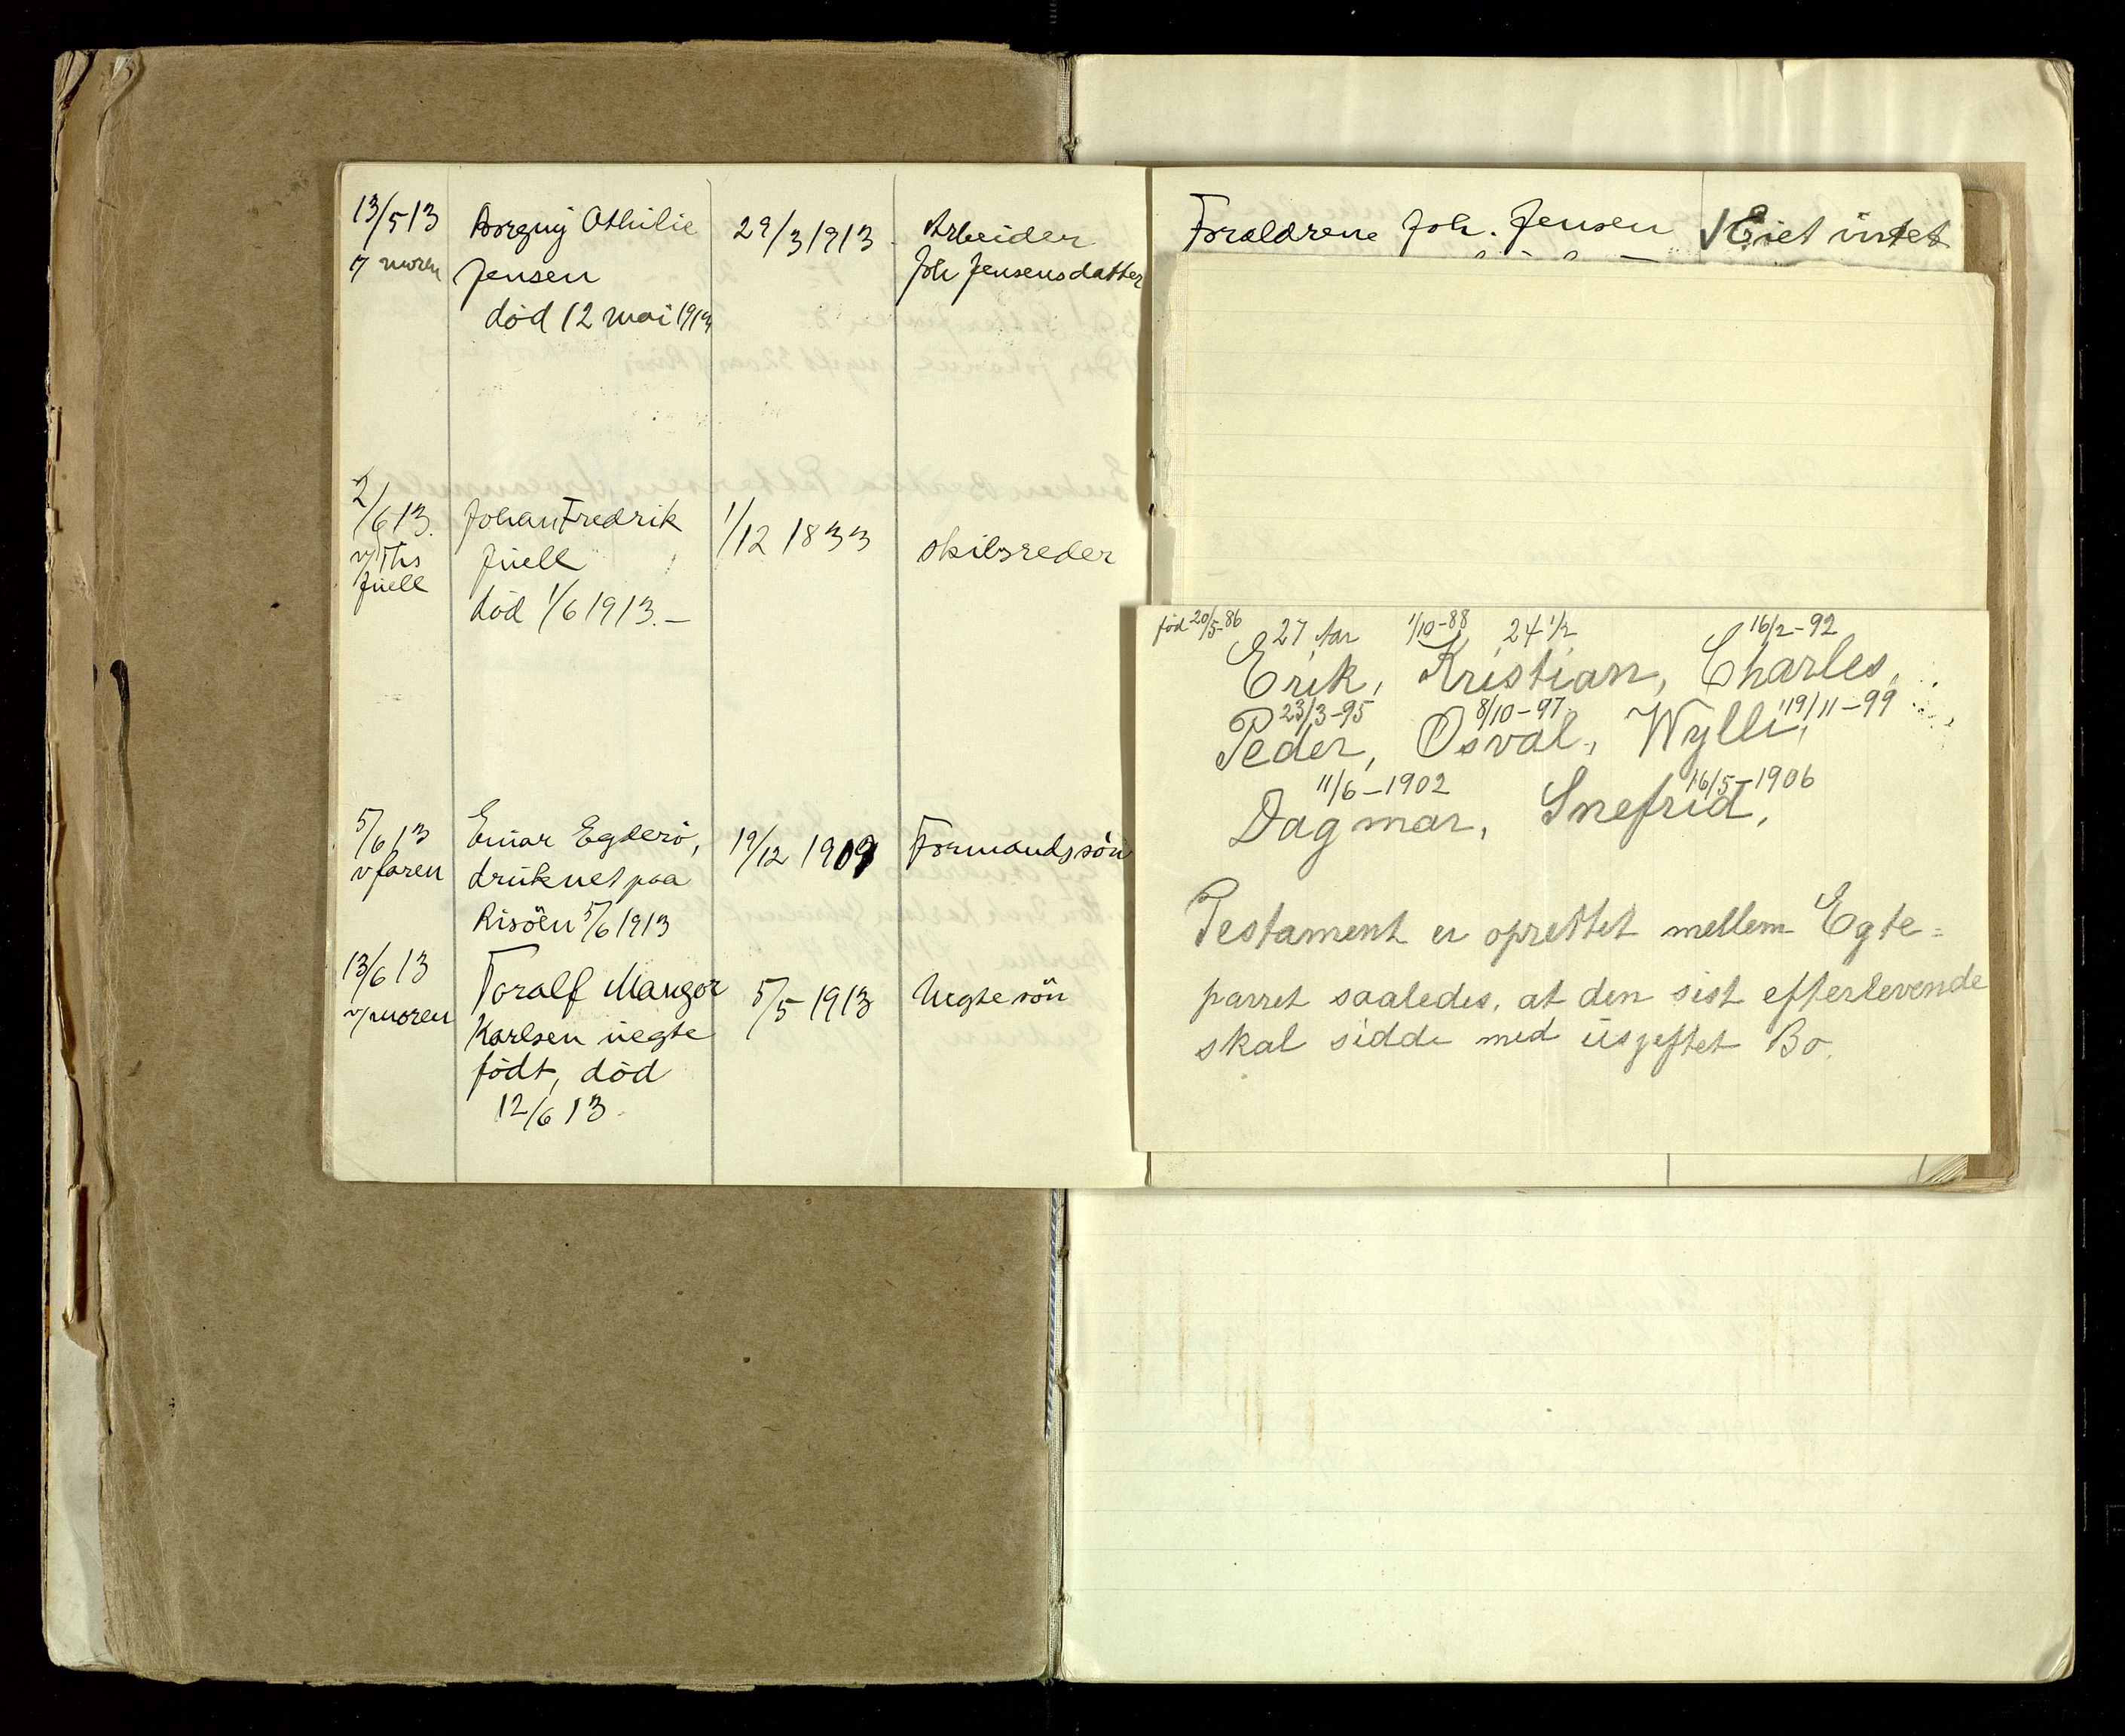 13/5 13 Borgny Othilie 29/3 1913 Arbeider
v moren Jensen Joh Jensens datter
död 12 mai 1913
2/6 13. Johan Fredrik 1/12 1833 skibsreder
v/ Ths Juell
Juell død 1/6 1913.–
5/6 13 Einar Egderö, 19/12 1909 Formandssön
v faren druknet paa
Risöen 5/6 1913
13/6 13 Toralf Mangor 5/5 1913 Uegte sön
v/moren Karlsen uegte
födt, död
12/6 13
Foraldrene Joh. Jensen Eiet intet
fød 20/5-86 27 Aar 1/10-88 24 1/2 16/2-92
Erik, Kristian, Charles,
23/3-95 8/10-97 19/11-99
Peder, Osval, Wylli,
11/6-1902 16/5-1906
Dagmar, Snefrid,
Testament er oprettet mellem Egte=
parret saaledes, at den sist efterlevende
skal sidde med uskiftet Bo.